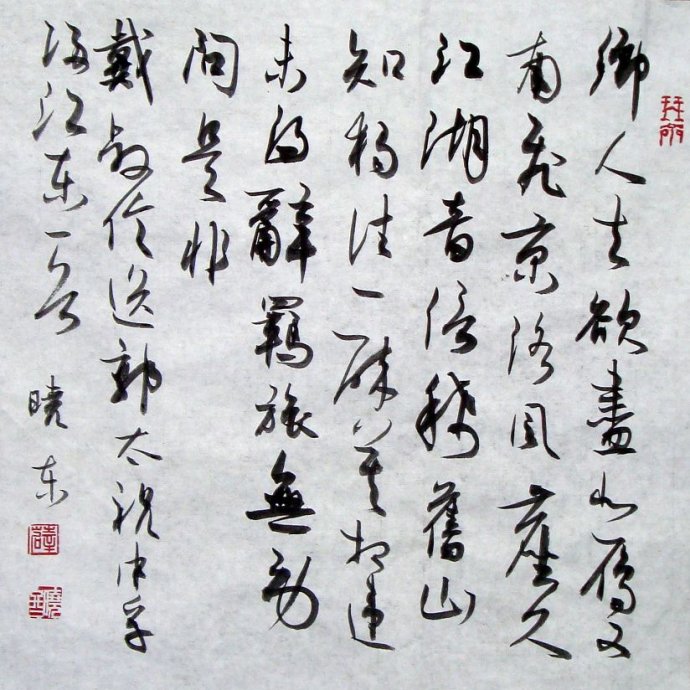 鄉人去欲盡北雁又
南飛京洛風塵久
江湖音信稀舊山
知獨往一醉莫相違
未得辭羈旅無勞
問是非
戴叔倫送郭太祝中孚
歸江東一首 曉東